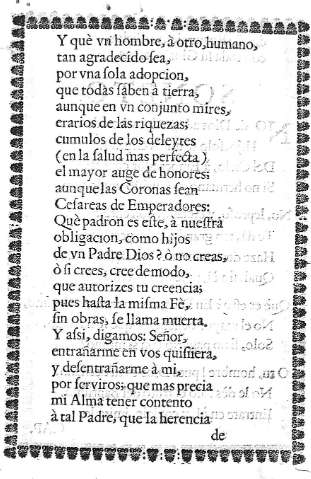 Y què vn hombre, à otro, humano,
tan agradecido ſea,
por vna ſola adopcion,
que todas ſaben à tierra,
aunque en vn conjunto mires,
erarios de las riquezas;
cumulos de los deleytes
(en la ſalud mas perfecta)
el mayor auge de honores:
aunque las Coronas ſean
Ceſareas de Emperadores:
Què padron es eſte, à nueſtra
obligacion, como hijos
de vn Padre Dios? ò no creas,
ò ſi crees, cree de modo,
que autorizes tu creencia;
pues haſta la miſma Fè,
ſin obras, ſe llama muerta.
Y aſsi, digamos: Señor,
entrañarme en vos quiſiera,
y deſentrañarme à mi,
por ſerviros; que mas precia
mi Alma tener contento
à tal Padre, que la herencia
de